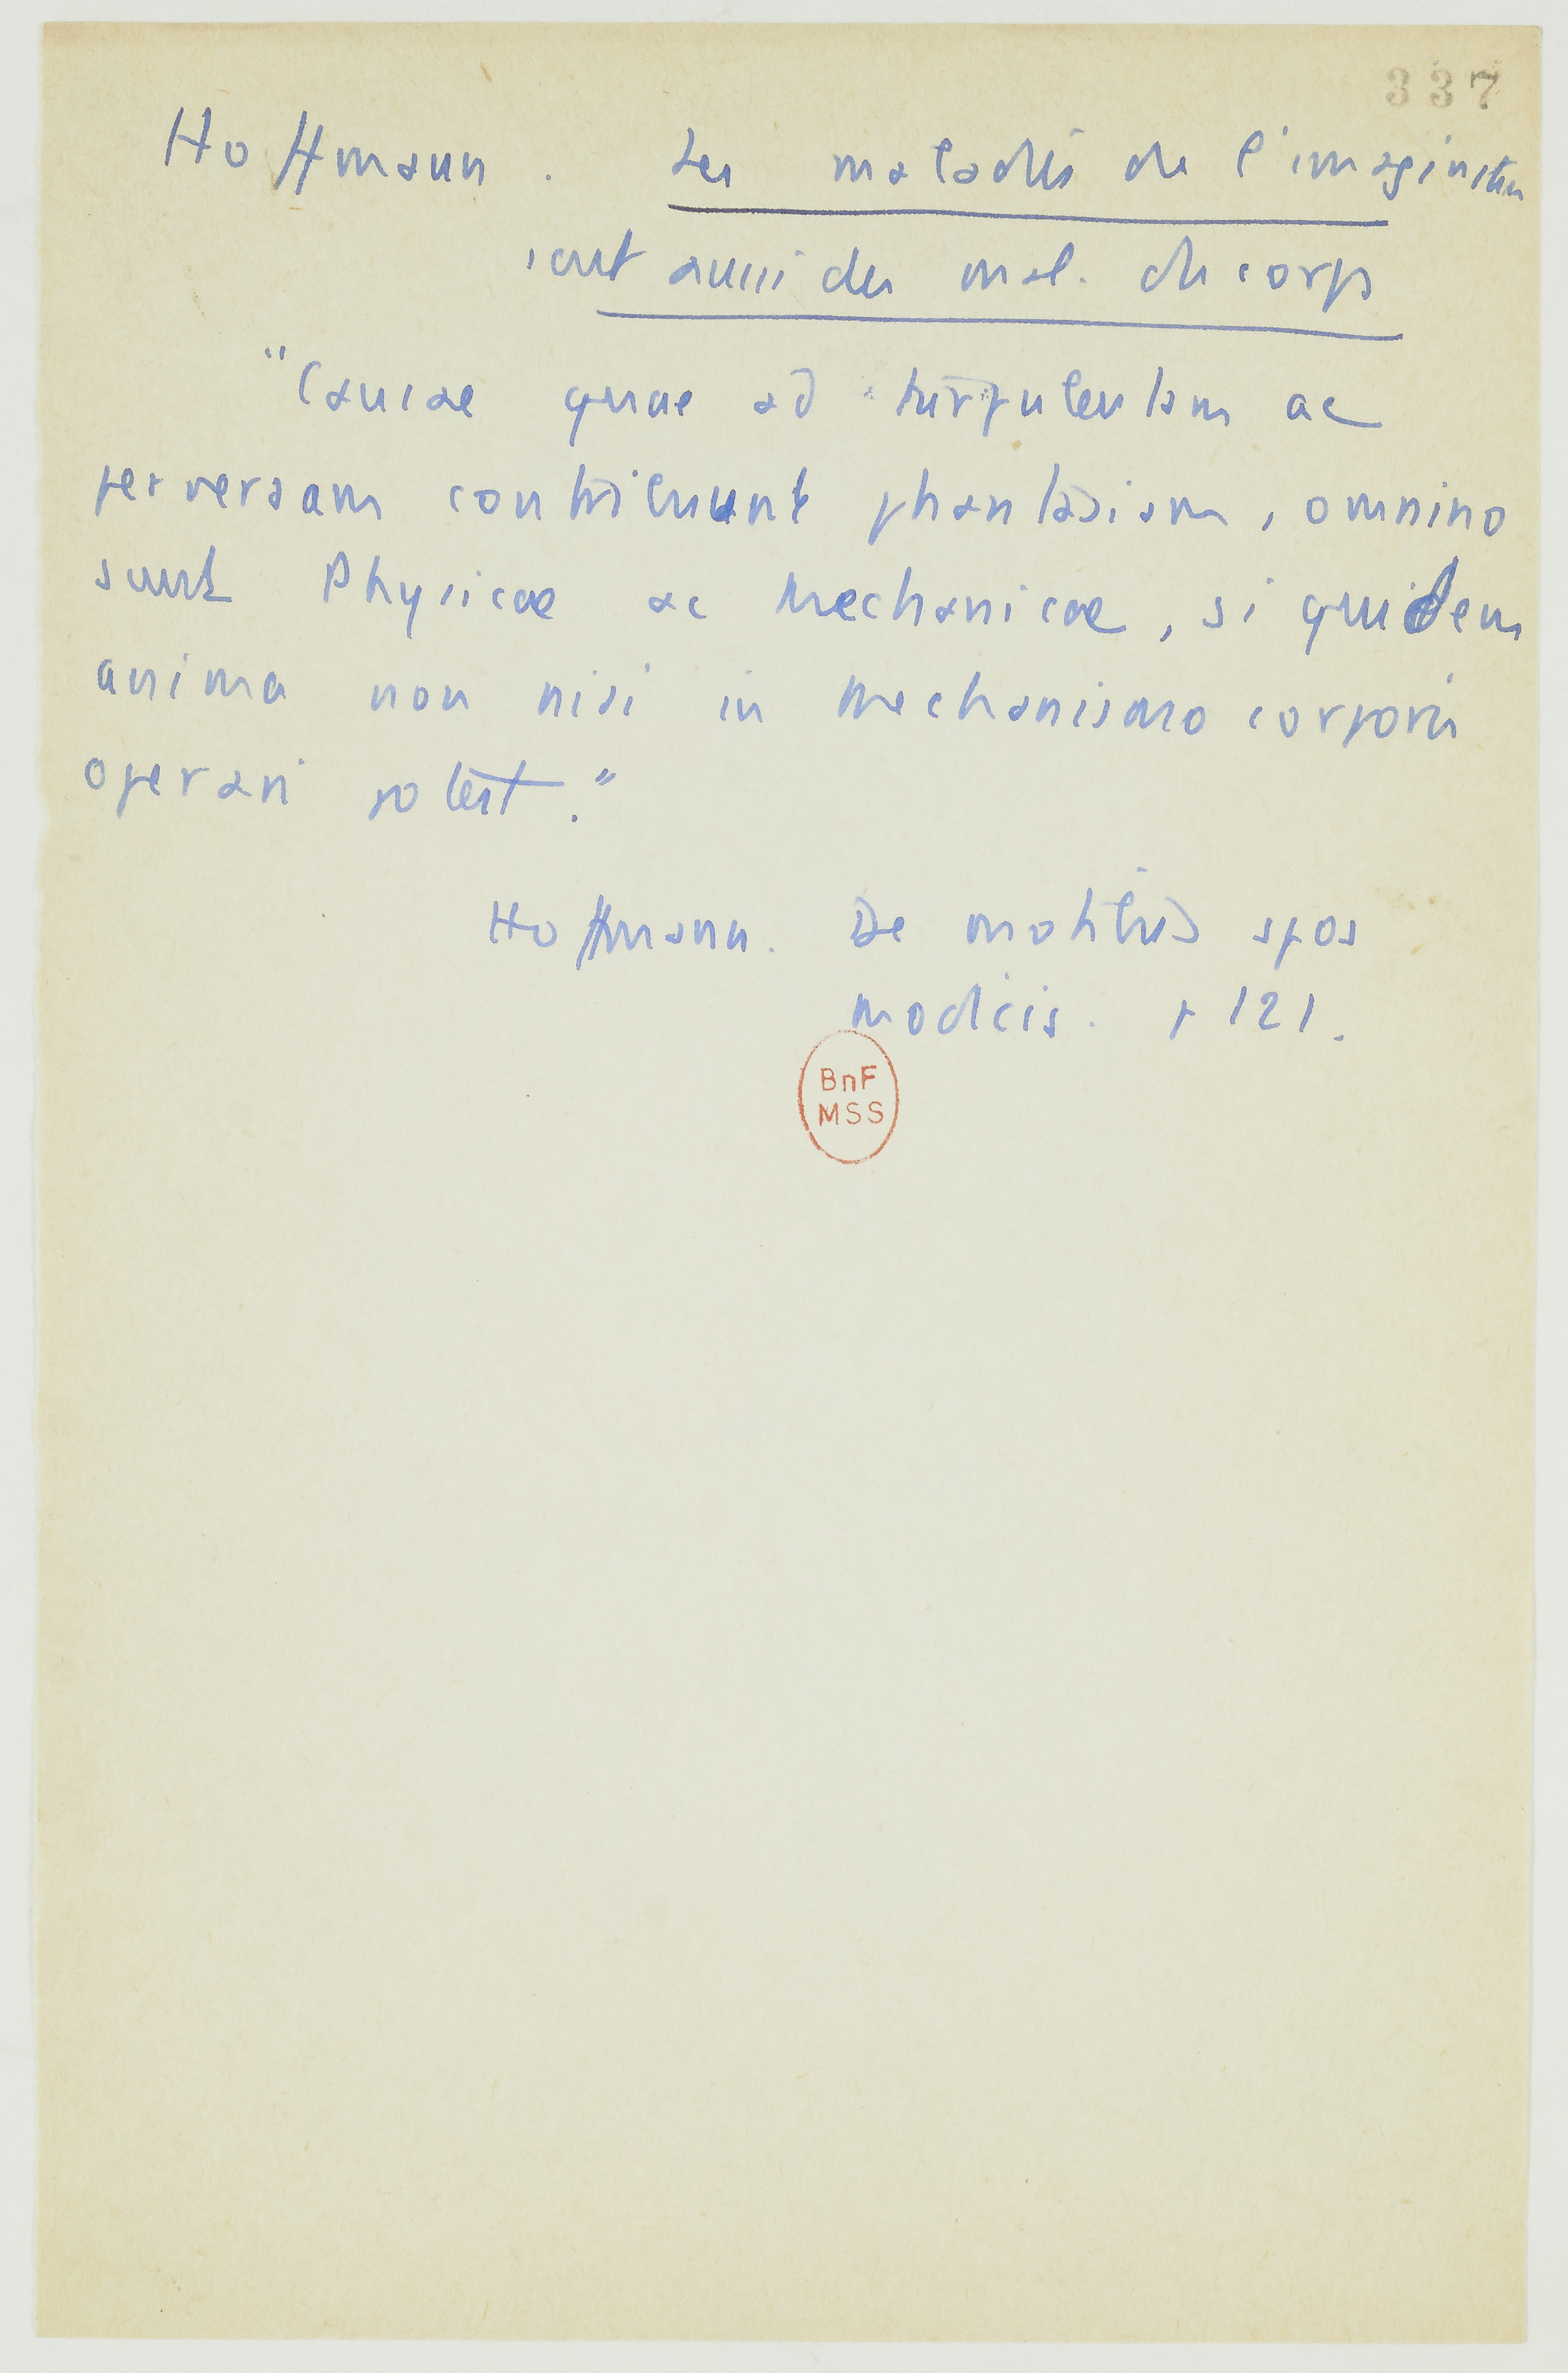 337
Hoffmann. Les maladies de l'imagination
sont aussi des mal. du corps
"Causae quae ad turpulentam ac
perversam contribuunt phantasiam, omnino
sunt Physicae ac Mechanicae, si quidem
anima non nisi in Mechanismo corporis
operari potest."
Hoffmann. De motibus spas
modicis. p 121.
BnF
MSS